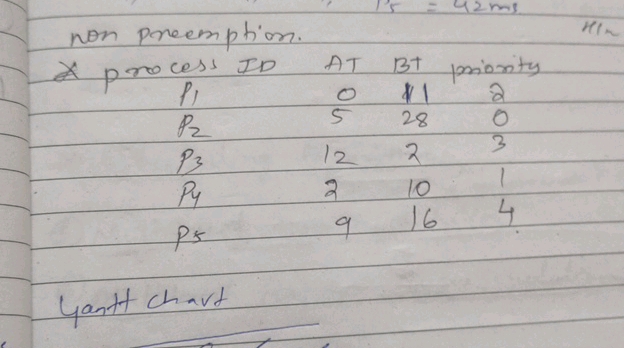 P5 = 42ms
non preemption.
* process ID AT BT priority
P1 0 11 2
P2 5 28 0
P3 12 2 3
P4 2 10 1
P5 9 16 4
Gantt chart